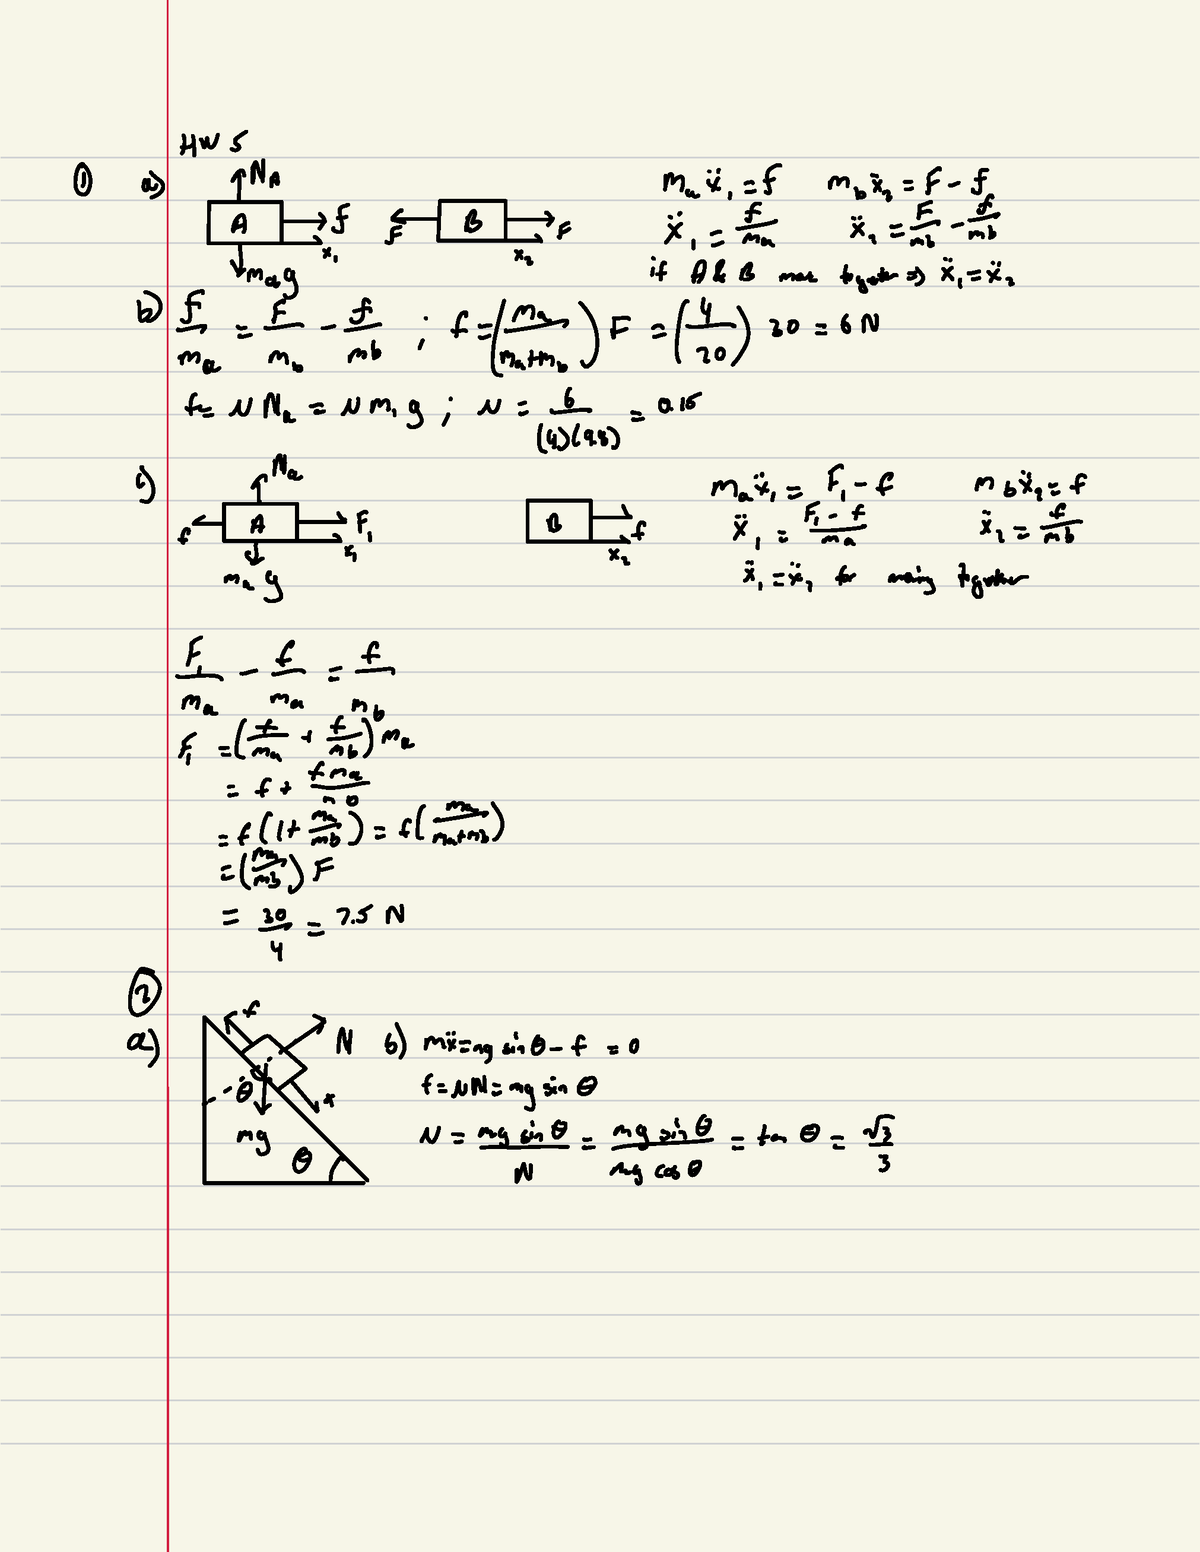 HW 5
① a) N_A
A f B
F F
x₁ x₂
m_a g
m_a ẍ₁ = f m_b ẍ₂ = F - f
ẍ₁ = f/m_a ẍ₂ = F/m_b - f/m_b
if A & B move together ⇒ ẍ₁ = ẍ₂
b) f/m_a = F/m_b - f/m_b ; f = (m_a/(m_a+m_b)) F = (4/20) 30 = 6 N
f = μ N_a = μ m₁ g ; μ = 6/((4)(9.8)) = 0.15
c) N_a
f A F₁ B f
x₁ x₂
m_a g
m_a ẍ₁ = F₁ - f m_b ẍ₂ = f
ẍ₁ = (F₁ - f)/m_a ẍ₂ = f/m_b
ẍ₁ = ẍ₂ for moving together
F₁/m_a - f/m_a = f/m_b
F₁ = (f/m_a + f/m_b) m_a
= f + f m_a/m_b
= f(1 + m_a/m_b) = f(m_a/(m_a+m_b))
= (m_a/m_b) F
= 30/4 = 7.5 N
②
a) f N
θ x
mg
θ
b) mẍ = mg sin θ - f = 0
f = μN = mg sin θ
μ = mg sin θ/N = mg sin θ/mg cos θ = tan θ = √3/3